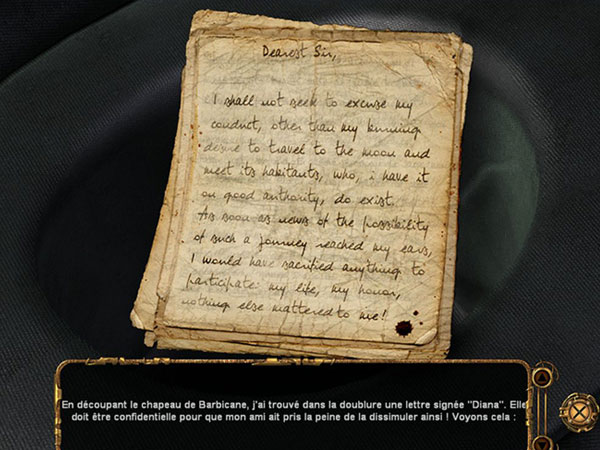 Dearest Sir,
I shall not seek to excuse my
conduct, other than my burning
desire to travel to the moon and
meet its habitants, who, i have it
on good authority, do exist.
As soon as news of the possibility
of such a journey reached my ears,
I would have sacrified anything to
participate: my life, my honor,
nothing else mattered to me!
En découpant le chapeau de Barbicane, j'ai trouvé dans la doublure une lettre signée "Diana". Elle
doit être confidentielle pour que mon ami ait pris la peine de la dissimuler ainsi ! Voyons cela :